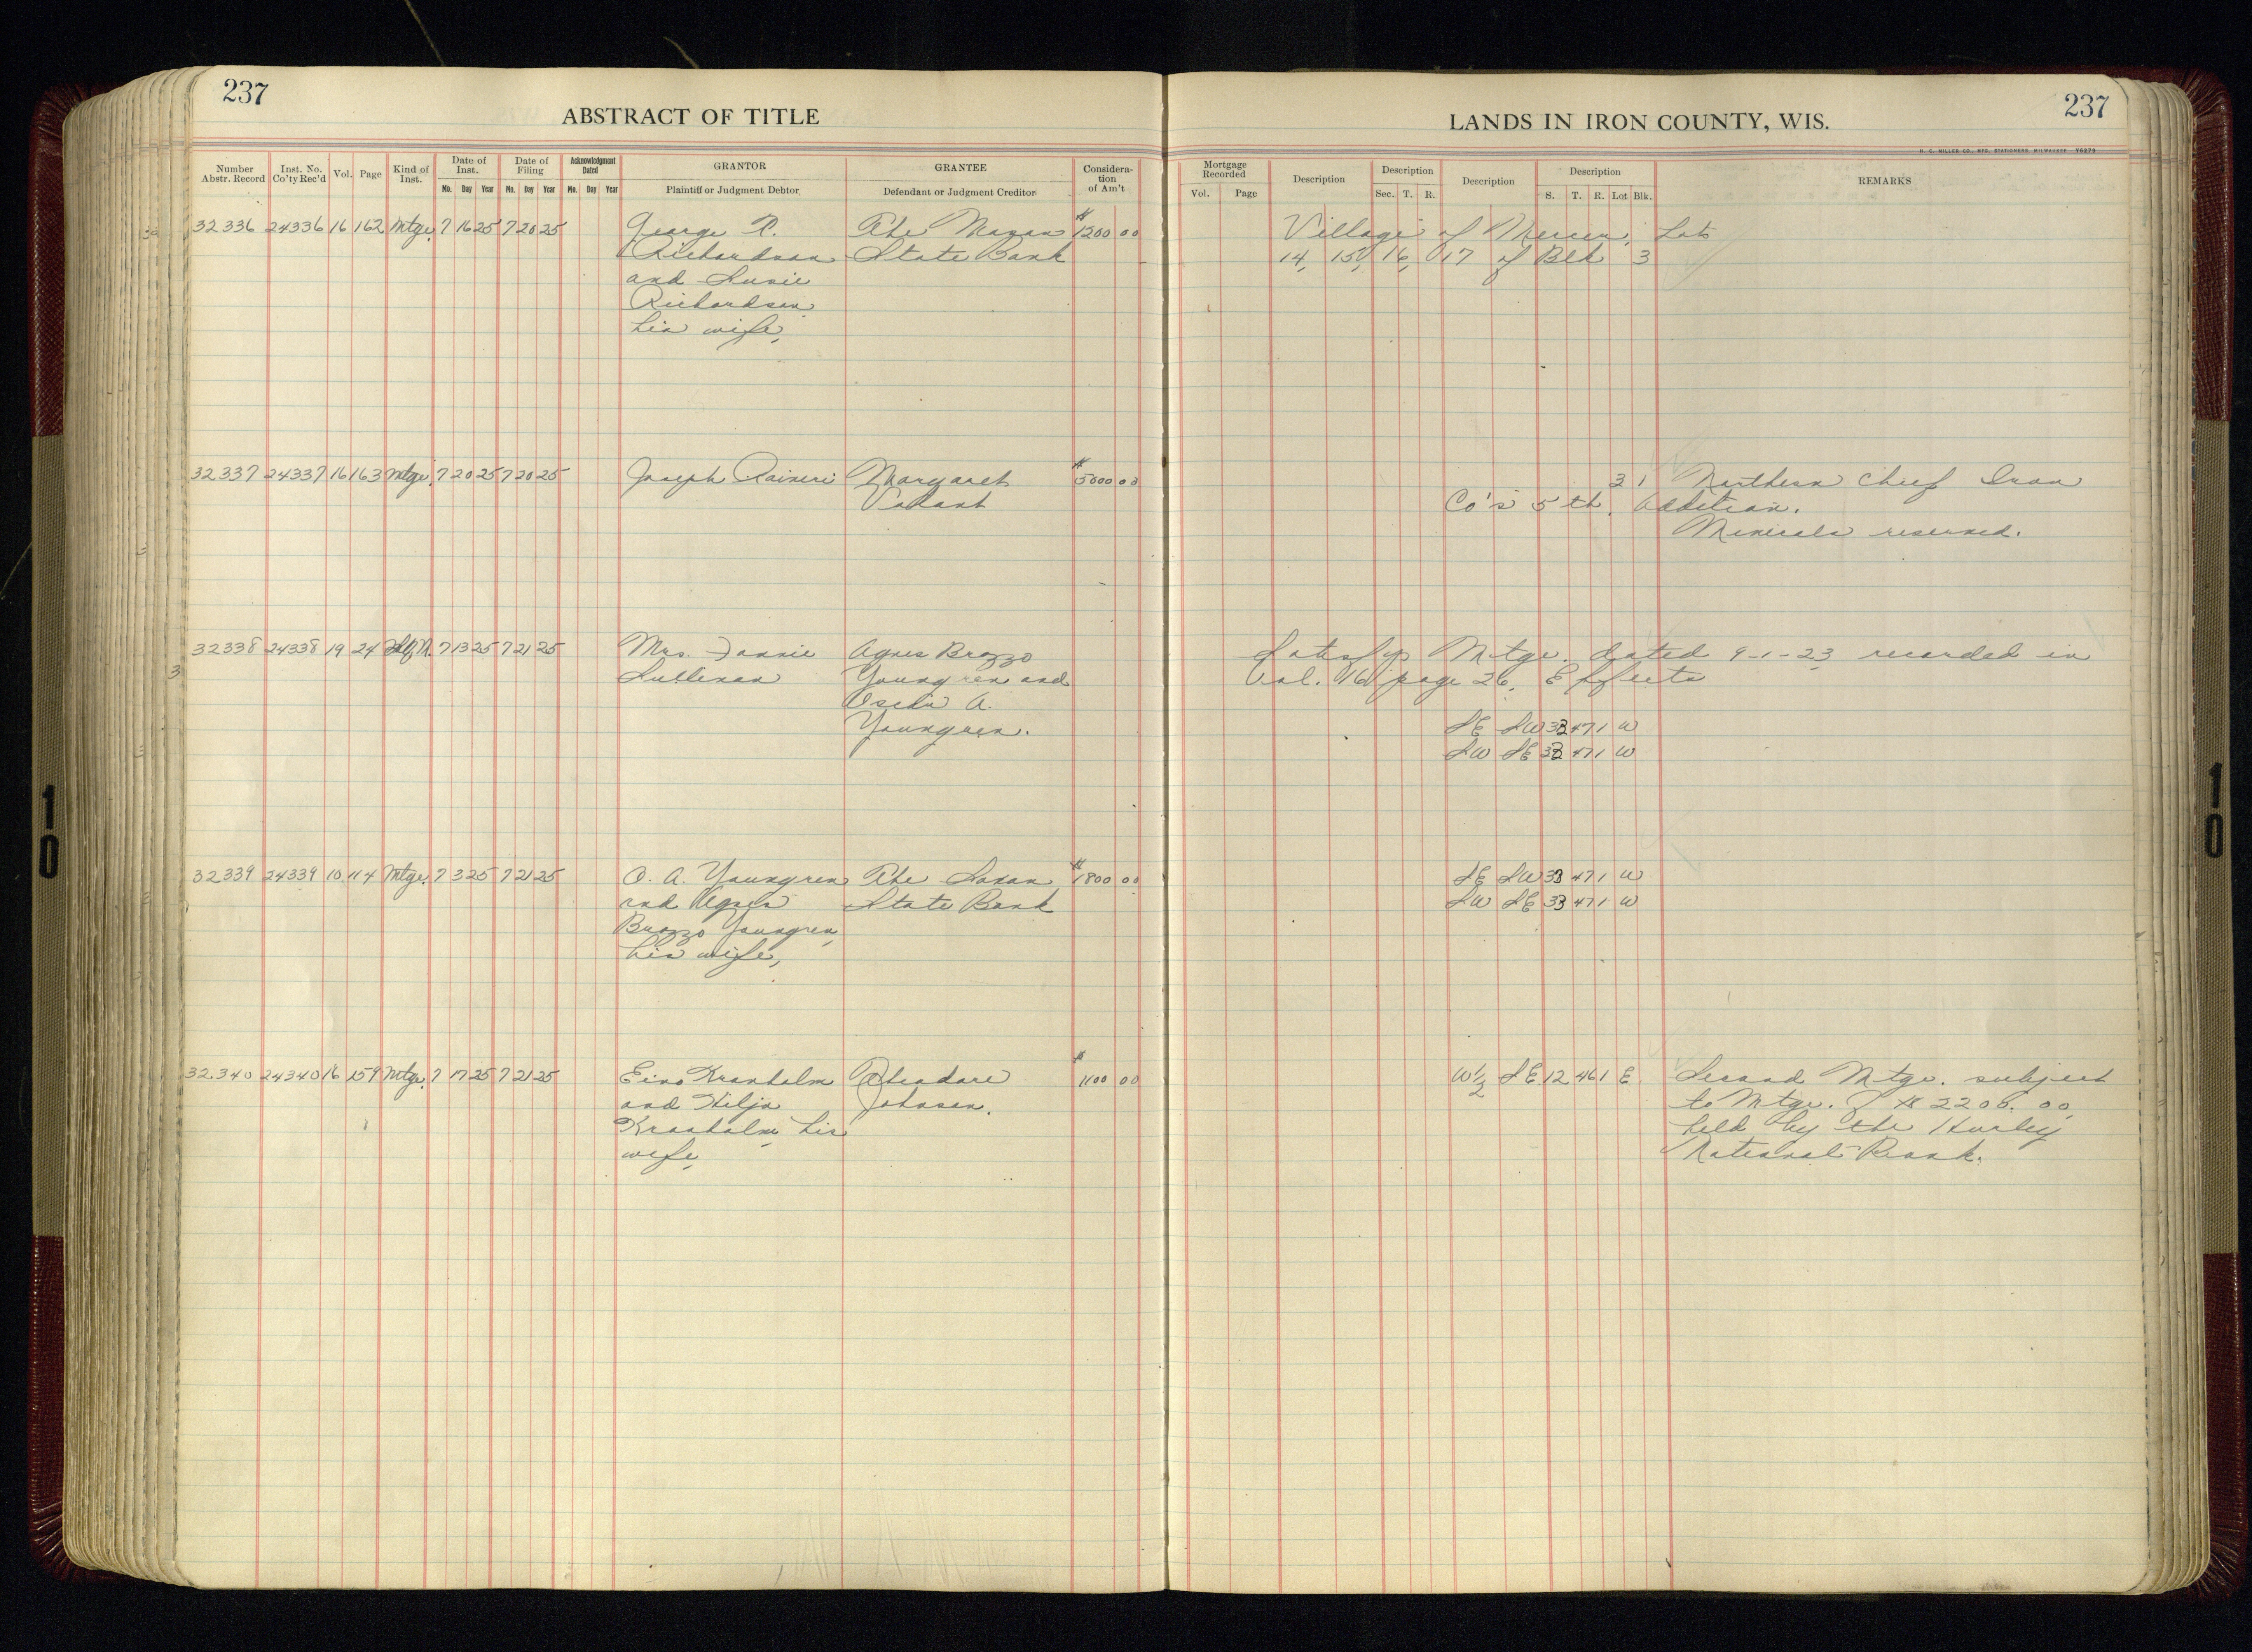 237
ABSTRACT OF TITLE
Number Abstr. Record | Inst. No. Co'ty Rec'd | Vol. | Page | Kind of Inst. | Date of Inst. Mo. Day Year | Date of Filing Mo. Day Year | Acknowledgment Dated Mo. Day Year | GRANTOR Plaintiff or Judgment Debtor | GRANTEE Defendant or Judgment Creditor | Consideration of Am't
32336 24336 16 162 Mtge. 7 16 25 7 20 25 George R. The Mazan $1200 00
Richardson State Bank
and Susie
Richardson
his wife,
32337 24337 16 163 Mtge. 7 20 25 7 20 25 Joseph Raineri Margaret $5000 00
32338 24338 19 24 7 13 25 7 21 25 Mrs. Fannie Agnes Brozzo
Sullivan Youngren and
A.
Youngren.
32339 24339 10 114 Mtge. 7 3 25 7 21 25 O. A. Youngren The Saxon $1800 00
and Agnes State Bank
Brozzo Youngren,
his wife,
32340 24340 16 159 Mtge. 7 17 25 7 21 25 Eino Kranholm Theodore $1100 00
and Hilja Johnson.
Kranholm his
wife
LANDS IN IRON COUNTY, WIS.
237
H. C. MILLER CO., MFG. STATIONERS, MILWAUKEE
Mortgage Recorded Vol. Page | Description | Description Sec. T. R. | Description | Description S. T. R. Lot Blk. | REMARKS
Village of Mercer, Lots
14, 15, 16, 17 of Blk 3
3 1 Northern Chief Iron
Co's 5th. Addition.
Minerals reserved.
Satisfys Mtge. dated 9-1-23 recorded in
Vol. 16 page 26. Effects
SE SW 33 47 1 W
SW SE 33 47 1 W
SE SW 33 47 1 W
SW SE 33 47 1 W
W1/2 SE 12 46 1 E Second Mtge. subject
to Mtge. of $2200.00
held by the Hurley
National Bank.
10
10